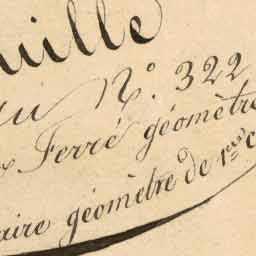 uille
N.º 322
Ferré géomètre
aire géomètre de 1ere c